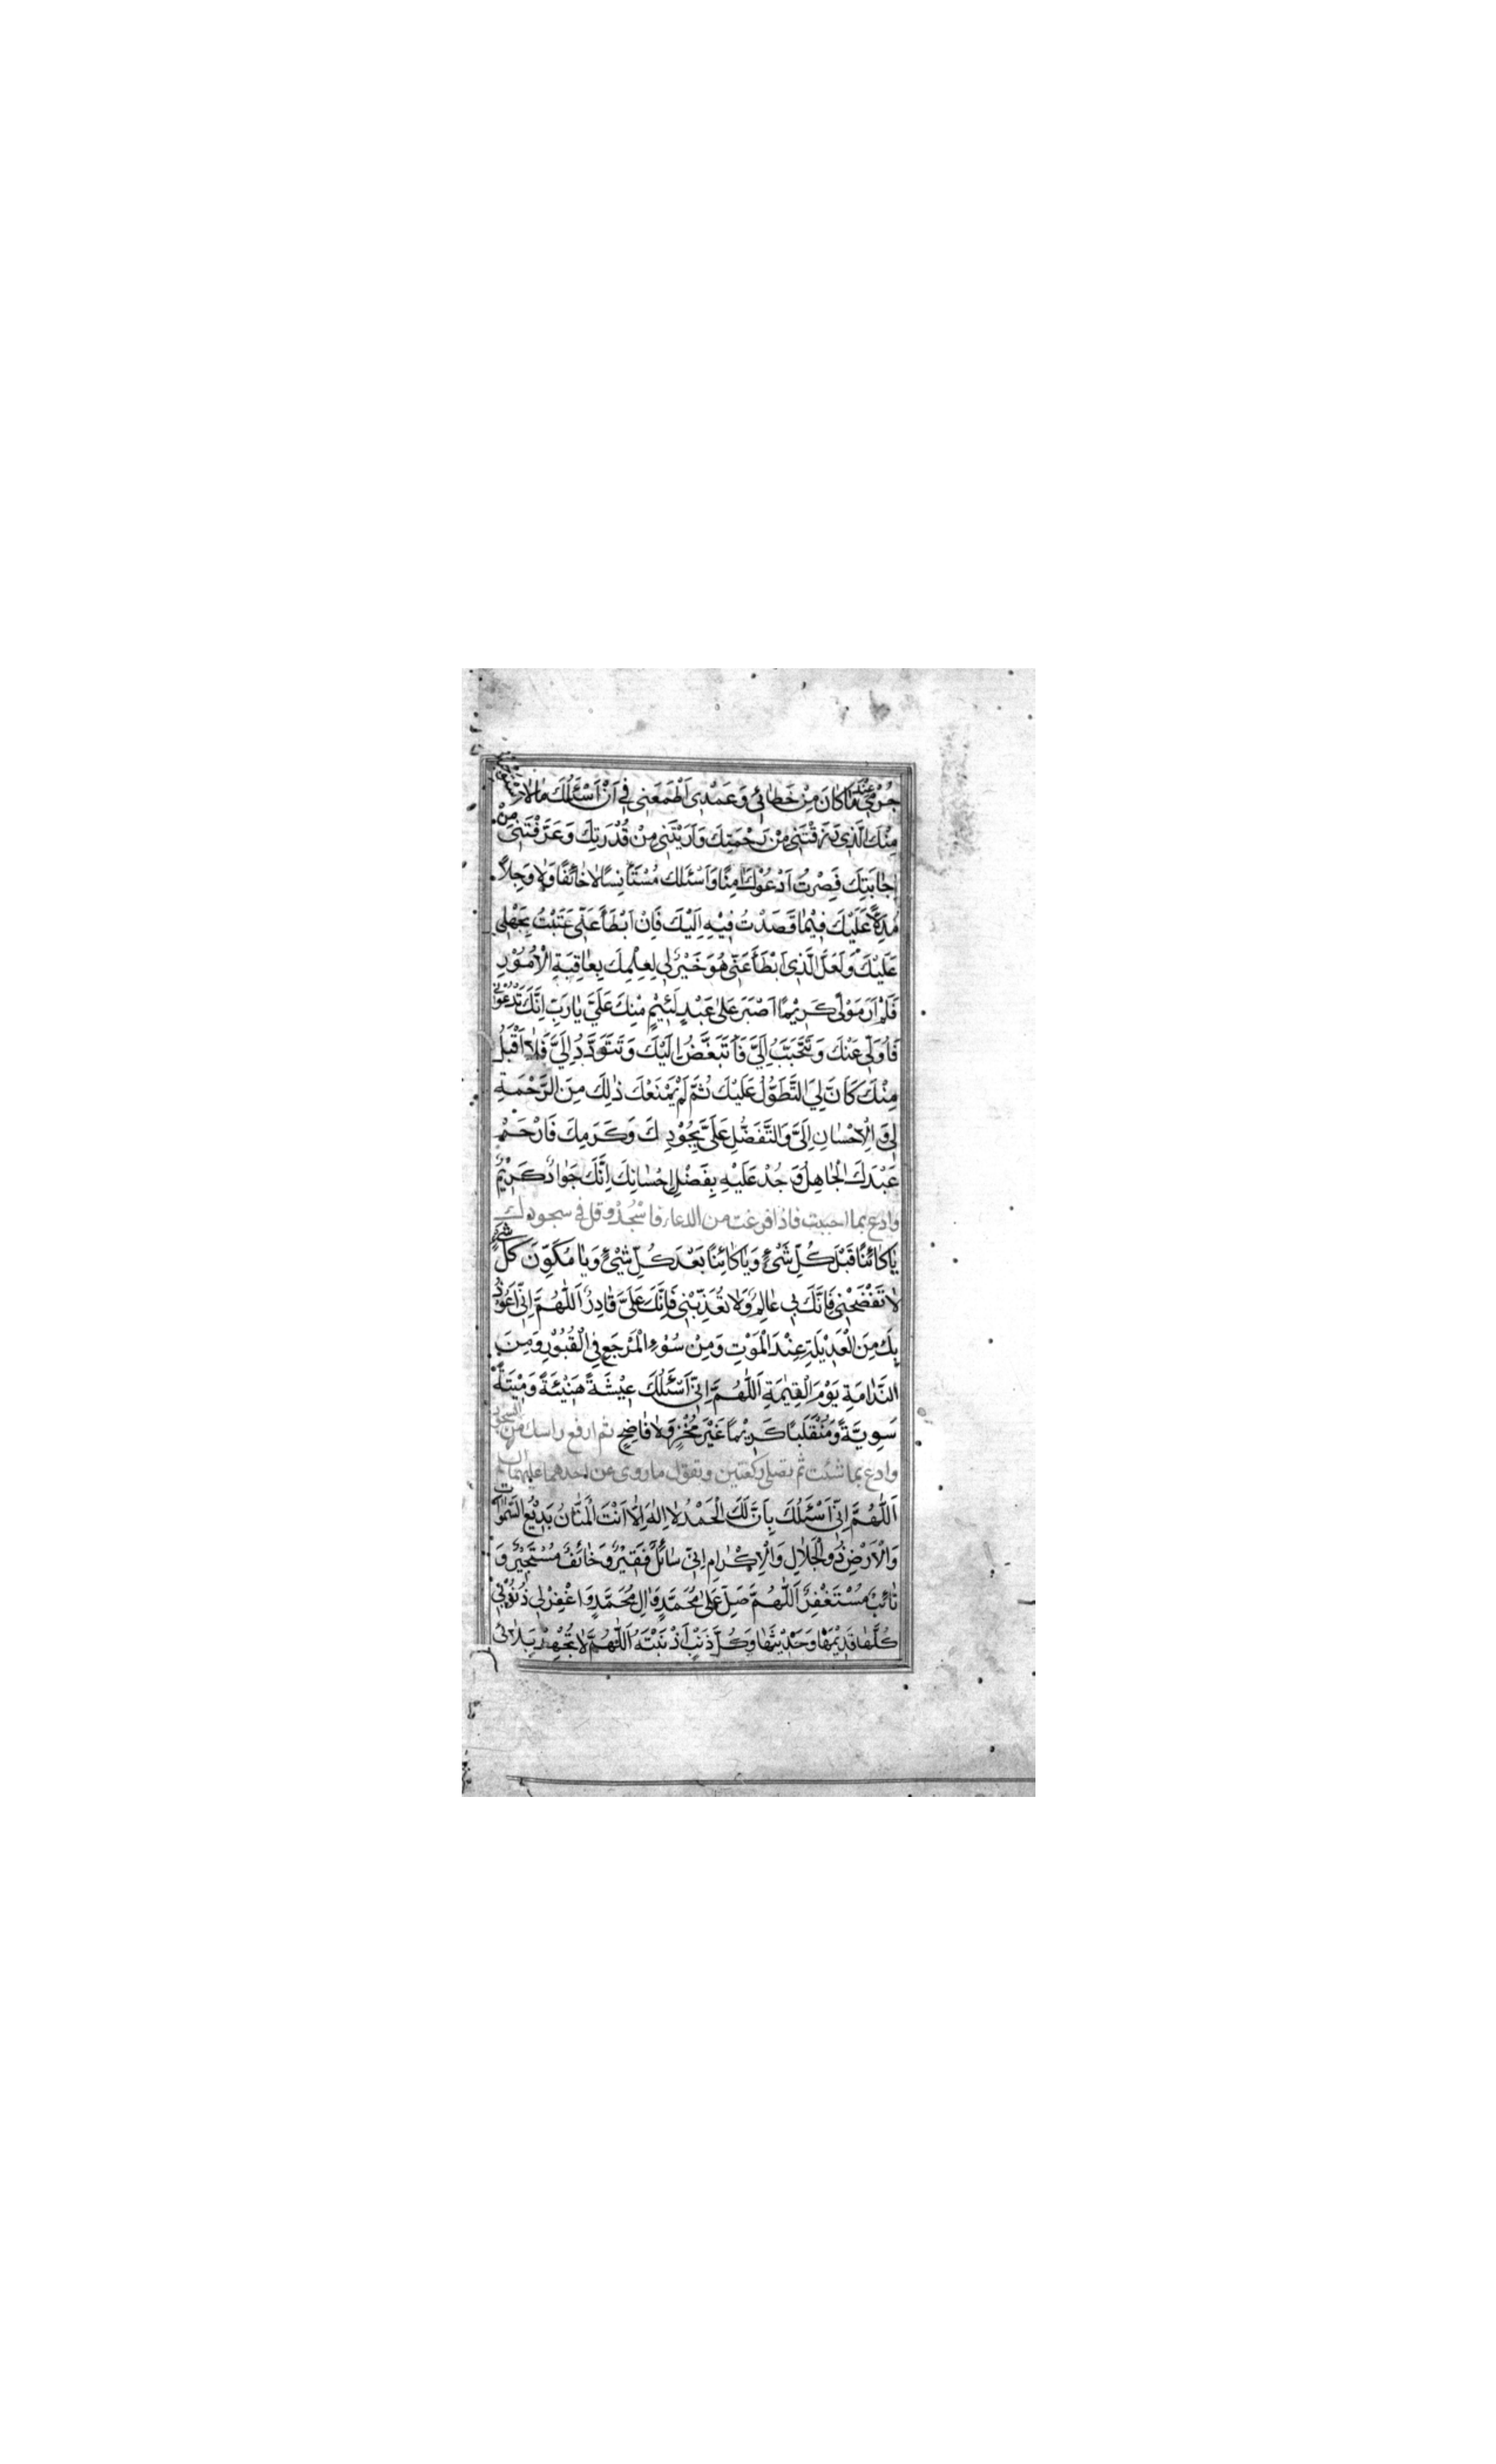 جُرْمِي عِنْدَ مَا كَانَ مِنْ خَطَائِي وَعَمْدِي أَطْمَعَنِي فِي أَنْ أَسْئَلَكَ مَا لَا
مِنْكَ الَّذِي رَزَقْتَنِي مِنْ رَحْمَتِكَ وَأَرَيْتَنِي مِنْ قُدْرَتِكَ وَعَرَّفْتَنِي مِنْ
إِجَابَتِكَ فَصِرْتُ أَدْعُوكَ اٰمِنًا وَأَسْئَلُكَ مُسْتَأْنِسًا لَا خَائِفًا وَلَا وَجِلًا
مُدِلًّا عَلَيْكَ فِيمَا قَصَدْتُ فِيهِ إِلَيْكَ فَإِنْ أَبْطَأَ عَنِّي عَتَبْتُ بِجَهْلِي
عَلَيْكَ وَلَعَلَّ الَّذِي أَبْطَأَ عَنِّي هُوَ خَيْرٌ لِي لِعِلْمِكَ بِعَاقِبَةِ الْأُمُورِ
فَلَمْ أَرَ مَوْلًى كَرِيمًا أَصْبَرَ عَلَى عَبْدٍ لَئِيمٍ مِنْكَ عَلَيَّ يَا رَبِّ إِنَّكَ تَدْعُونِي
فَأُوَلِّي عَنْكَ وَتَتَحَبَّبُ إِلَيَّ فَأَتَبَغَّضُ إِلَيْكَ وَتَتَوَدَّدُ إِلَيَّ فَلَا أَقْبَلُ
مِنْكَ كَأَنَّ لِيَ التَّطَوُّلَ عَلَيْكَ ثُمَّ لَمْ يَمْنَعْكَ ذٰلِكَ مِنَ الرَّحْمَةِ
لِي وَالْإِحْسَانِ إِلَيَّ وَالتَّفَضُّلِ عَلَيَّ بِجُودِكَ وَكَرَمِكَ فَارْحَمْ
عَبْدَكَ الْجَاهِلَ وَجُدْ عَلَيْهِ بِفَضْلِ إِحْسَانِكَ إِنَّكَ جَوَادٌ كَرِيمٌ
وادع بما احببت فاذا فرغت من الدعاء فاسْجُدْ وقل فى سجودك
يَا كَائِنًا قَبْلَ كُلِّ شَيْءٍ وَيَا كَائِنًا بَعْدَ كُلِّ شَيْءٍ وَيَا مُكَوِّنَ كُلِّ شَيْءٍ
لَا تَفْضَحْنِي فَإِنَّكَ بِي عَالِمٌ وَلَا تُعَذِّبْنِي فَإِنَّكَ عَلَيَّ قَادِرٌ اَللّٰهُمَّ إِنِّي أَعُوذُ
بِكَ مِنَ الْعَدِيلَةِ عِنْدَ الْمَوْتِ وَمِنْ سُوءِ الْمَرْجَعِ فِي الْقُبُورِ وَمِنَ
النَّدَامَةِ يَوْمَ الْقِيٰمَةِ اَللّٰهُمَّ إِنِّي أَسْئَلُكَ عِيشَةً هَنِيئَةً وَمِيتَةً
سَوِيَّةً وَمُنْقَلَبًا كَرِيمًا غَيْرَ مُخْزٍ وَلَا فَاضِحٍ ثم ارفع راسك من السجود
وادع بما شئت ثم تصلى ركعتين وتقول ما روى عن احدهما عليهما
اَللّٰهُمَّ إِنِّي أَسْئَلُكَ بِأَنَّ لَكَ الْحَمْدَ لَا إِلٰهَ إِلَّا أَنْتَ الْمَنَّانُ بَدِيعُ السَّمٰوَاتِ
وَالْأَرْضِ ذُو الْجَلَالِ وَالْإِكْرَامِ إِنِّي سَائِلٌ فَقِيرٌ وَخَائِفٌ مُسْتَجِيرٌ وَ
تَائِبٌ مُسْتَغْفِرٌ اَللّٰهُمَّ صَلِّ عَلٰى مُحَمَّدٍ وَاٰلِ مُحَمَّدٍ وَاغْفِرْ لِي ذُنُوبِي
كُلَّهَا قَدِيمَهَا وَحَدِيثَهَا وَكُلَّ ذَنْبٍ أَذْنَبْتُهُ اَللّٰهُمَّ لَا تُجْهِدْ بَلَائِي